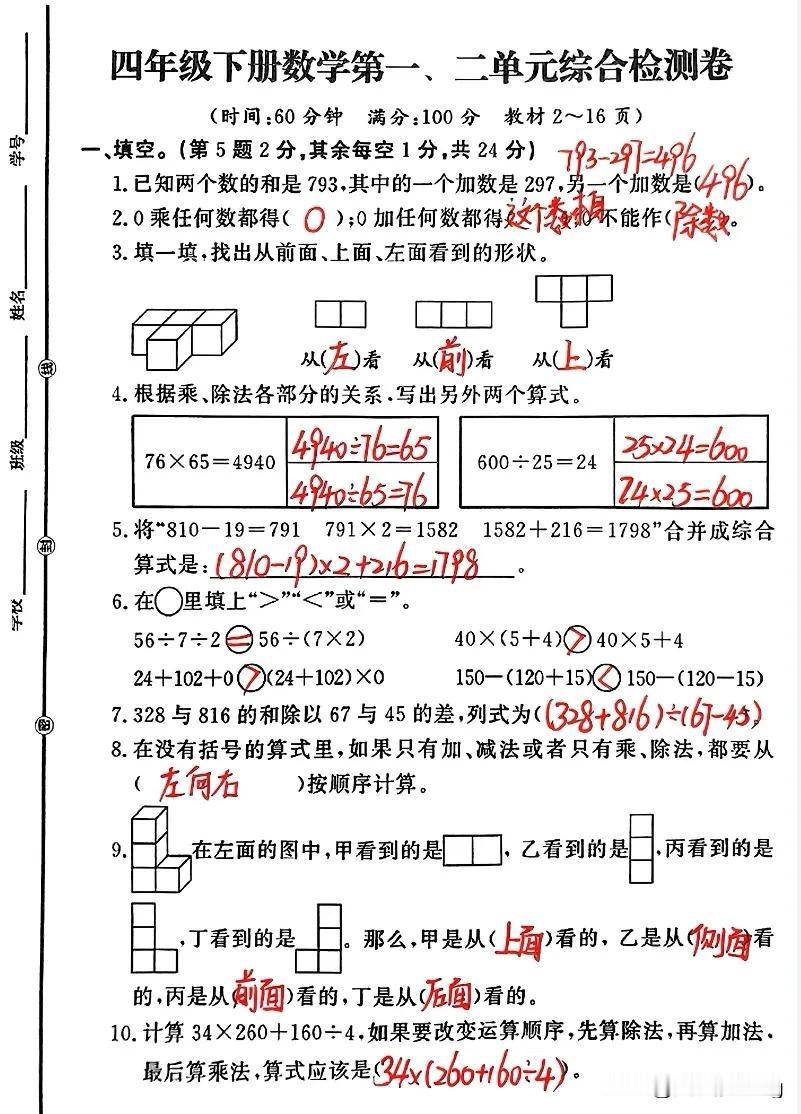 四年级下册数学第一、二单元综合检测卷
(时间:60分钟 满分:100分 教材2～16页)
一、填空。(第5题2分,其余每空1分,共24分)
793-297=496
1.已知两个数的和是793,其中的一个加数是297,另一个加数是(496)。
2.0乘任何数都得(0);0加任何数都得这个数本身 0不能作(除数。
3.填一填,找出从前面、上面、左面看到的形状。
从(左)看 从(前)看 从(上)看
4.根据乘、除法各部分的关系,写出另外两个算式。
76×65=4940 4940÷76=65 600÷25=24 25×24=600
4940÷65=76 24×25=600
5.将“810-19=791 791×2=1582 1582+216=1798”合并成综合
算式是:(810-19)×2+216=1798。
6.在○里填上“>”“<”或“=”。
56÷7÷2=56÷(7×2) 40×(5+4)>40×5+4
24+102+0>(24+102)×0 150-(120+15)<150-(120-15)
7.328与816的和除以67与45的差,列式为((328+816)÷(67-45)
8.在没有括号的算式里,如果只有加、减法或者只有乘、除法,都要从
(左向右)按顺序计算。
9.在左面的图中,甲看到的是 ,乙看到的是 ,丙看到的是
,丁看到的是 。那么,甲是从(上面)看的,乙是从(侧面)看
的,丙是从(前面)看的,丁是从(后面)看的。
10.计算34×260+160÷4,如果要改变运算顺序,先算除法,再算加法,
最后算乘法,算式应该是(34×(260+160÷4)。
学号
姓名
班级
学校
线
封
密